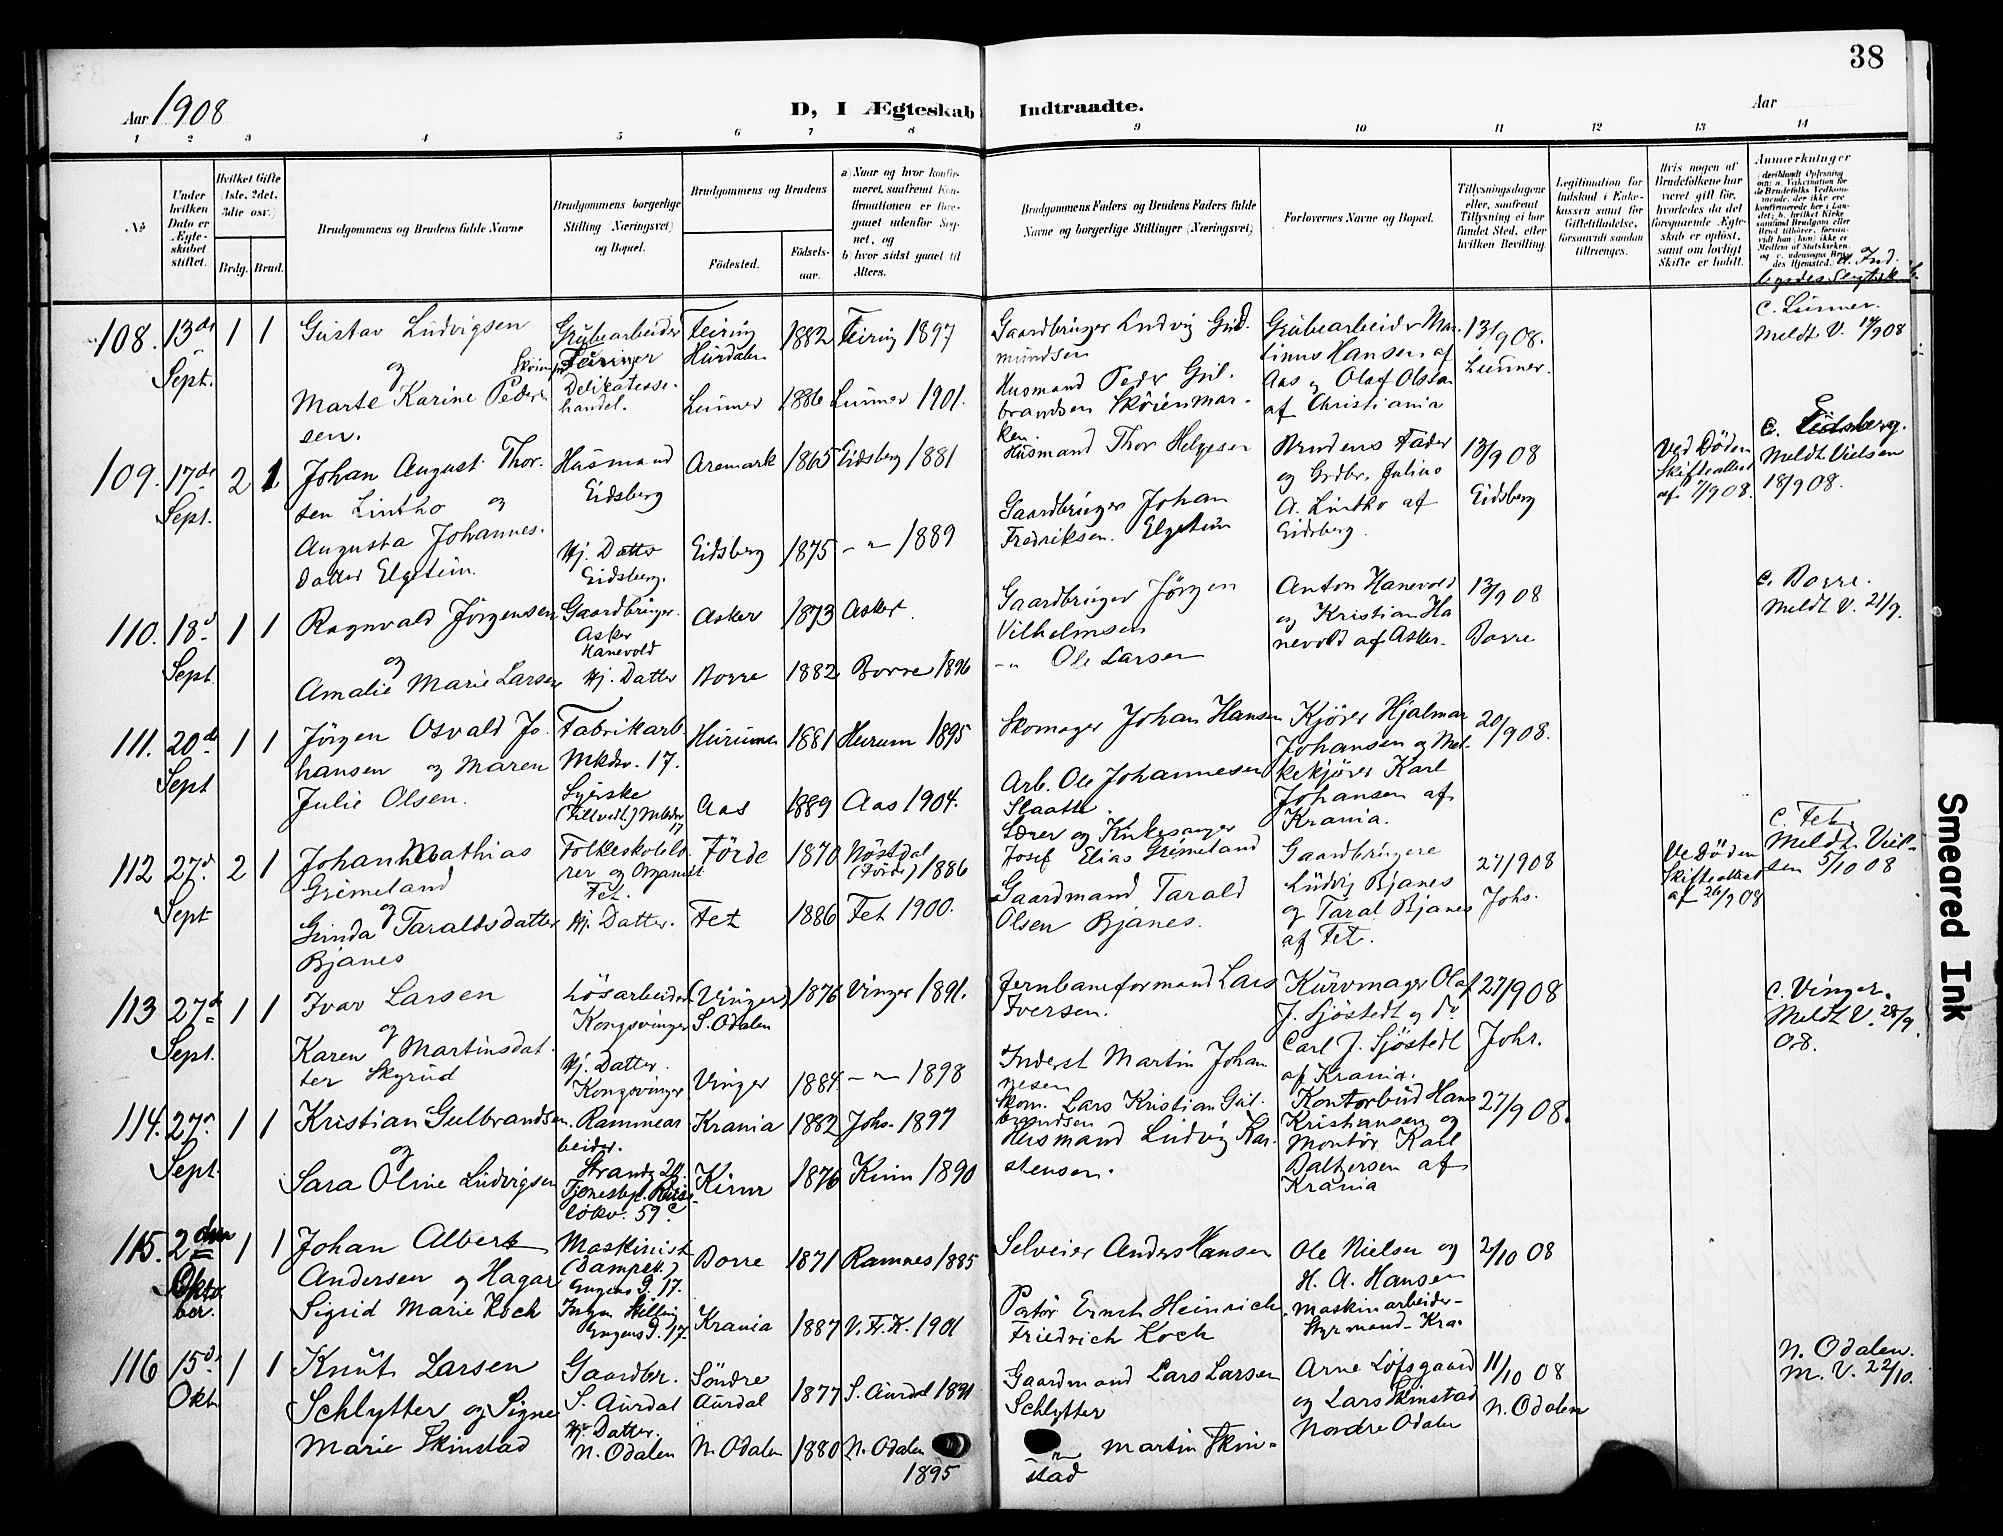 38
Aar 1908
D, I Ægteskab Indtraadte.
Aar
1 2 3 4 5 6 7 8 9 10 11 12 13 14
No
Under hvilken Dato er Ægteskabet stiftet.
Hvilket Gifte (1ste, 2det, 3die osv.)
Brdg. Brud.
Brudgommens og Brudens fulde Navne
Brudgommens borgerlige Stilling (Næringsvei) og Bopæl.
Brudgommens og Brudens
Fødested. Fødselsaar.
a) Naar og hvor konfirmeret, saafremt Konfirmationen er foregaaet udenfor Sognet, og
b) hvor sidst gaaet til Alters.
Brudgommens Faders og Brudens Faders fulde Navne og borgerlige Stillinger (Næringsvei)
Forlovernes Navne og Bopæl.
Tillysningsdagene eller, saafremt Tillysning ei har fundet Sted, efter hvilken Bevilling.
Legitimation for Indskud i Enkekassen samt for Giftetilladelse, forsaavidt saadan tiltrænges.
Hvis nogen af Brudefolkene har været gift før, hvorledes da det foregaaende Ægteskab er opløst, samt om lovligt Skifte er holdt.
Anmerkninger
108. 13de Sept. 1 1
Gustav Ludvigsen
og
Marte Karine Pedersen.
Grubearbeider
Delikatessehandel.
Feiring Hurdalen 1882 Feiring 1897
Lunner 1886 Lunner 1901.
Gaardbruger Ludvig Gudmundsen
Husmand Peder Gulbrandsen Sköienmarken.
Grubearbeider Marlinus Hansen af Aas og Olaf Olsen af Christiania
13/9 08. Lunner.
c. Lunner. Meldt V. 14/9 08
109. 17de Sept. 2 1
Johan August Thorsen Lintho og
Augusta Johannesdatter Elgetun.
Husmand Eidsberg
Hj. Datter Eidsberg.
Aremark 1865 Eidsberg 1881
Eidsberg 1875 -"- 1889
Husmand Thor Helgesen
Gaardbruger Johan Fredriksen Elgetun
Brudens Fader og Grdbr. Julius A. Lintho af Eidsberg.
13/9 08 Eidsberg
Ved Døden Skifteattest af 7/9 08.
c. Eidsberg. Meldt Vielsen 18/9 08.
110. 18d Sept. 1 1
Ragnvald Jörgensen
og
Amalie Marie Larsen
Gaardbruger. Asker Hanevold
Hj. Datter
Asker 1873 Asker.
Borre 1882 Borre 1896
Gaardbruger Jörgen Vilhelmsen
-"- Ole Larsen
Anton Hanevold og Kristian Hanevold af Asker.
13/9 08 Borre
c. Borre. Meldt V. 21/9.
111. 20de Sept 1 1
Jörgen Osvald Johansen og Maren Julie Olsen.
Fabrikarb. Mkdv. 17.
Syerske
Hurum 1881 Hurum 1895
Aas 1889 Aas 1904.
Skomager Johan Hansen
Arb. Ole Johannesen Slaatte.
Kjörer Hjalmar Johansen og Melkekjörer Karl Johansen af Krania.
20/9 08.
112 27d Sept 2 1
Johan Mathias Grimeland
og
Gunda Taraldsdatter Bjanes
Folkeskolelærer og Organist Fet.
Hj. Datter.
Förde 1870 Nöstdal (Förde) 1886
Fet 1886 Fet 1900.
Lærer og Kirkesanger Josef Elias Grimeland
Gaardmand Tarald Olsen Bjanes.
Gaardbrugere Ludvig Bjanes og Taral Bjanes af Fet.
27/9 08 Johs.
Ve Døden Skifteattest af 26/9 08
c. Fet. Meldt Vielsen 5/10 08
113 27d Sept. 1 1
Ivar Larsen
og
Karen Martinsdatter Skyrud
Lösarbeider Kongsvinger
Hj. Datter. Kongsvinger
(Vinger) S. Odalen 1876 Vinger 1891.
Vinger 1884 -"- 1898
Jernbaneformand Lars Iversen.
Inderst Martin Johannesen
Kurvmager Olaf J. Sjöstedt og do Carl J. Sjöstedt af Krania.
27/9 08 Johs.
c. Vinger. Meldt V. 28/9. 08.
114. 27d Sept 1 1
Kristian Gulbrandsen.
og
Sara Oline Ludvigsen
Rammearbeider. Strandg 24.
Krania 1882 Johs. 1897
Kinn 1876 Kinn 1890
Skom. Lars Kristian Gulbrandsen
Husmand Ludvig Karstensen.
Kontorbud Hans Kristiansen og Montör Karl Baltersen af Krania
27/9 08.
115. 2den Oktober. 1 1
Johan Albert Andersen og Hagar Sigrid Marie Koch
Maskinist (Dampsk.) Engens g. 17.
Engens g. 17
Borre 1871 Ramnes 1885
Krania 1887 V. Fr. K. 1901
Selveier Anders Hansen
Ernst Heinrich Friedrich Koch
Ole Nielsen og H. A. Hansen Maskinarbeider - Styrmand - Kra.
2/10 08
116 15d Okt. 1 1
Knut Larsen Schlytter og Signe Marie Skinstad
Gaardbr. S. Aurdal
Hj. Datter. N. Odalen
Söndre Aurdal 1877 S. Aurdal 1891
N. Odalen 1880 N. Odalen 1895
Gaardmand Lars Larsen Schlytter
-"- Martin Skinstad
Arne Lofsgaard og Lars Skinstad Nordre Odalen
11/10 08 N. Odalen
N. Odalen. M. V. 22/10.
Smeared Ink